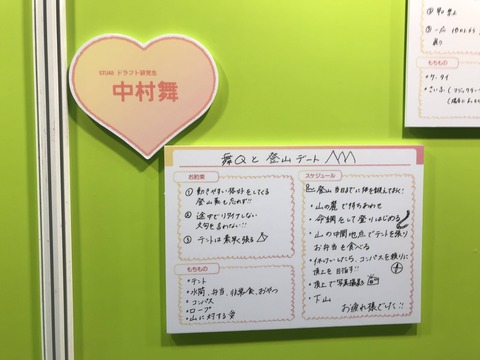 STU48 ドラフト研究生
中村舞
舞Qと登山デート
お約束
① 動きやすい格好をしてくる
登山靴も忘れず!!
② 途中でリタイアしない
文句を言わない!!
③ テントは素早く張る
もちもの
・テント
・水筒、弁当、非常食、おやつ
・コンパス
・ロープ
・山に対する愛
スケジュール
登山当日までに体を鍛えておく!
・山の麓で待ちあわせ
・体操をして登りはじめる
・山の中間地点でテントを張り
お弁当を食べる
・休けいしたら、コンパスを頼りに
頂上を目指す!!
・頂上で写真撮影
・下山
お疲れ様でした!!
もちもの
・ケータイ